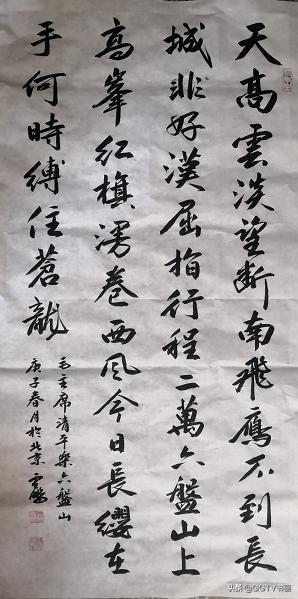 天高雲淡望斷南飛鷹不到長
城非好漢屈指行程二萬六盤山上
高峯紅旗漫卷西风今日長纓在
手何時縛住蒼龍
毛主席清平樂六盤山
庚子春月於北京
头条@GGTV书画